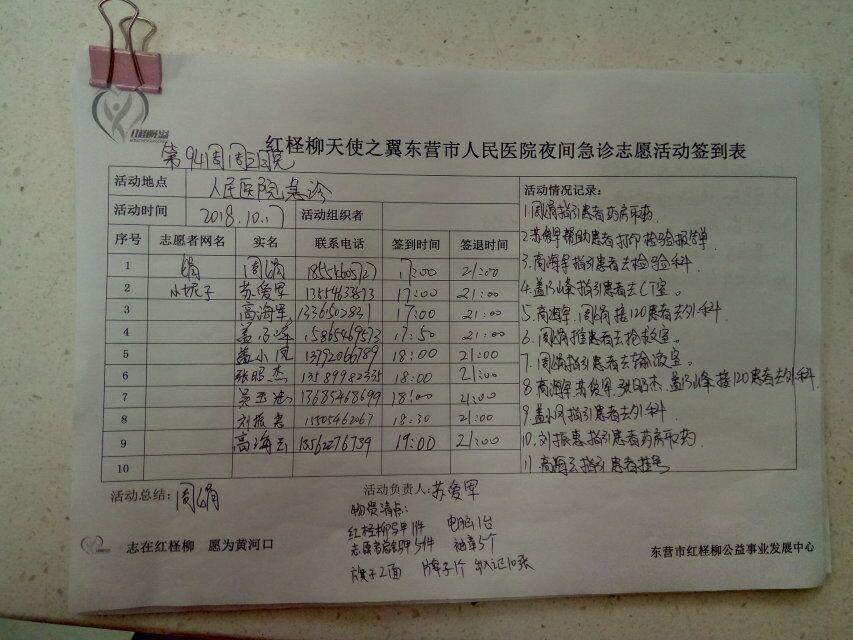 红柽柳公益
红柽柳天使之翼东营市人民医院夜间急诊志愿活动签到表
第941周周三医院
活动地点 人民医院急诊
活动时间 2018.10.17 活动组织者
序号 志愿者网名 实名 联系电话 签到时间 签退时间
1 娟 周娟 17:00 21:00
2 小妮子 苏爱军 17:00 21:00
3 高海军 17:00 21:00
4 盖 峰 15865469573 17:50 21:00
5 盖小凤 13792066789 18:00 21:00
6 张昭杰 13589982335 18:00 21:00
7 吴玉 13685468699 18:00 21:00
8 刘振惠 15505462067 18:30 21:00
9 高海云 13562276739 19:00 21:00
10
活动情况记录:
1.周娟指引患者药房取药.
2.苏爱军帮助患者打印检验报告单.
3.高海军指引患者去检验科.
4.盖 峰指引患者去CT室。
5.高海军.周娟接120患者去外科.
6.周娟推患者去抢救室。
7.周娟指引患者去输液室。
8.高海军.苏爱军.张昭杰.盖 峰.接120患者去外科.
9.盖小凤指引患者去外科.
10.刘振惠指引患者药房取药.
11.高海云指引患者挂号
活动总结: 周娟
活动负责人:苏爱军
物资清点:
红柽柳马甲1件 电脑1台
志愿者 马甲5件 袖章5个
旗子2面 牌子1个 登记10张
志在红柽柳 愿为黄河口
东营市红柽柳公益事业发展中心